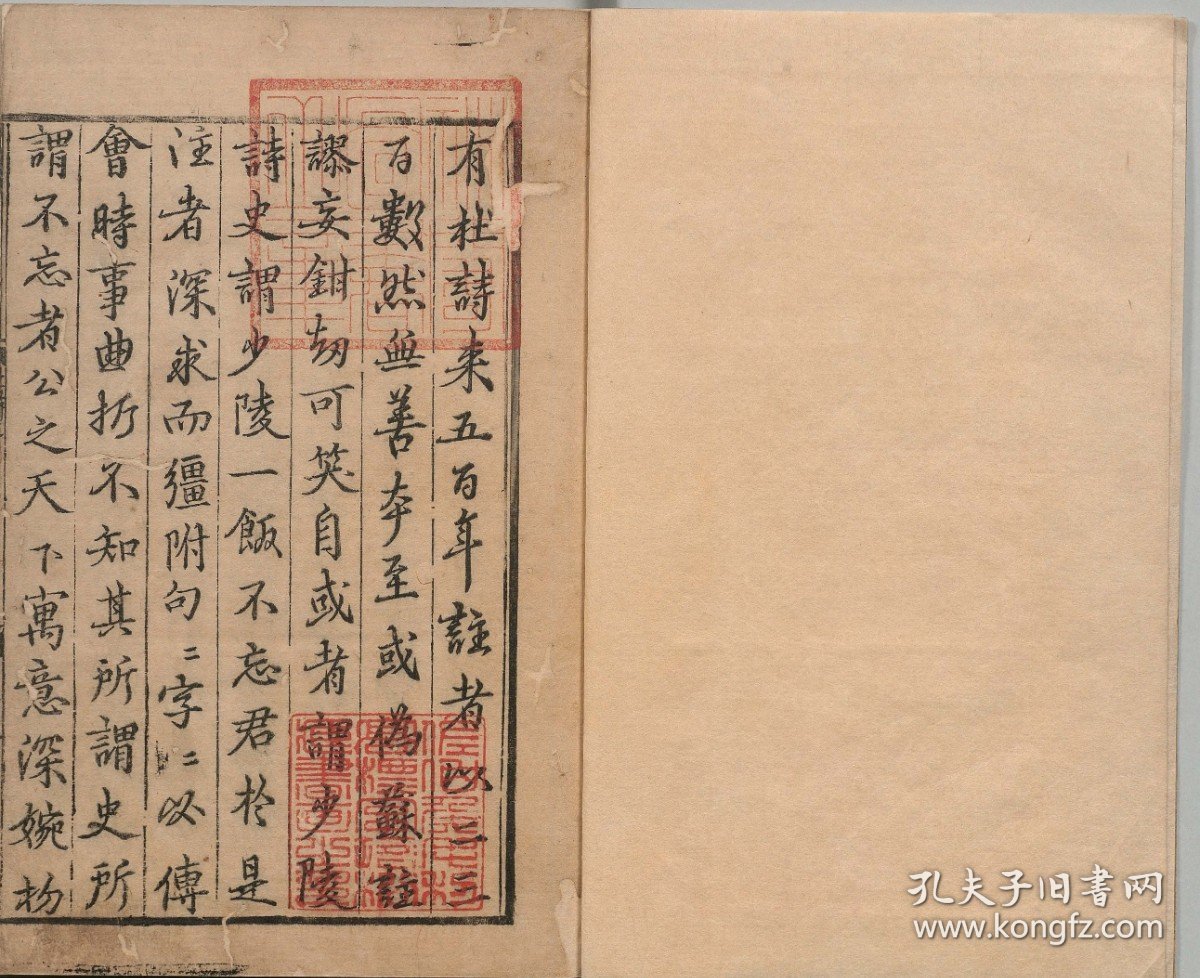 有杜詩来五百年註者以二三
百數然無善本至或僞蘇註
謬妄鉗刧可笑自或者謂少陵
詩史謂少陵一飯不忘君於是
注者深求而彊附句〻字〻以傅
會時事曲折不知其所謂史所
謂不忘者公之天下寓意深婉初
孔夫子旧书网
www.kongfz.com